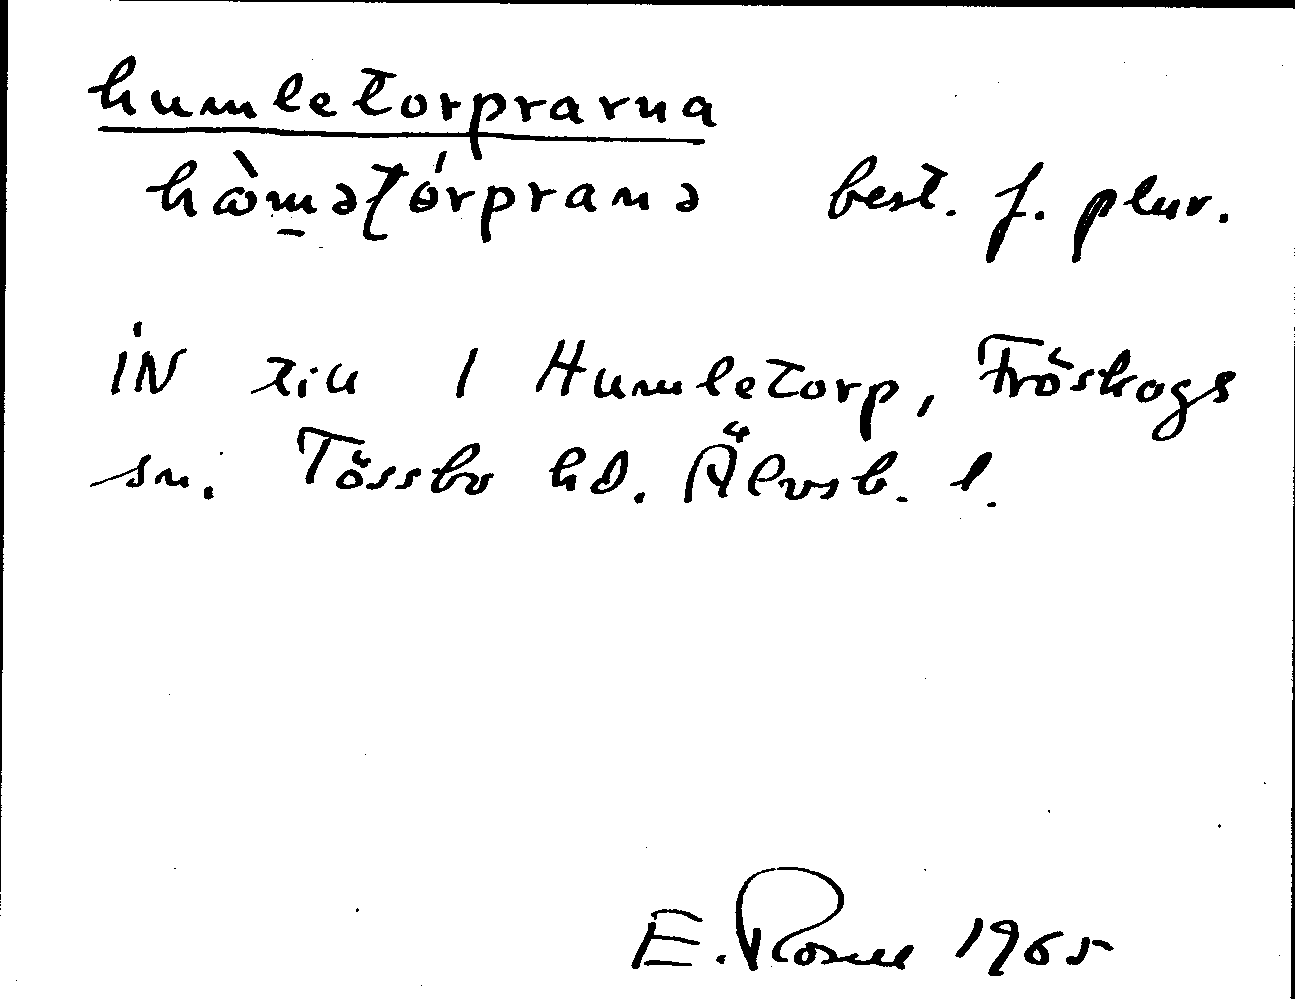 humletorprarna
hɷ̀m̱əʈórpranə best. f. plur.
iN till 1 Humletorp, Fröskogs
sn. Tössbo hd. Älvsb. l.
E. Rosell 1965